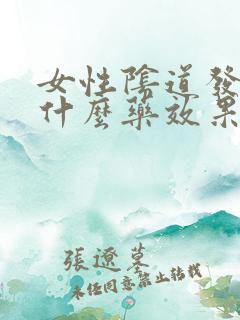 女性陰道發
什麼藥效果
張遼墓
未经同意禁止转载